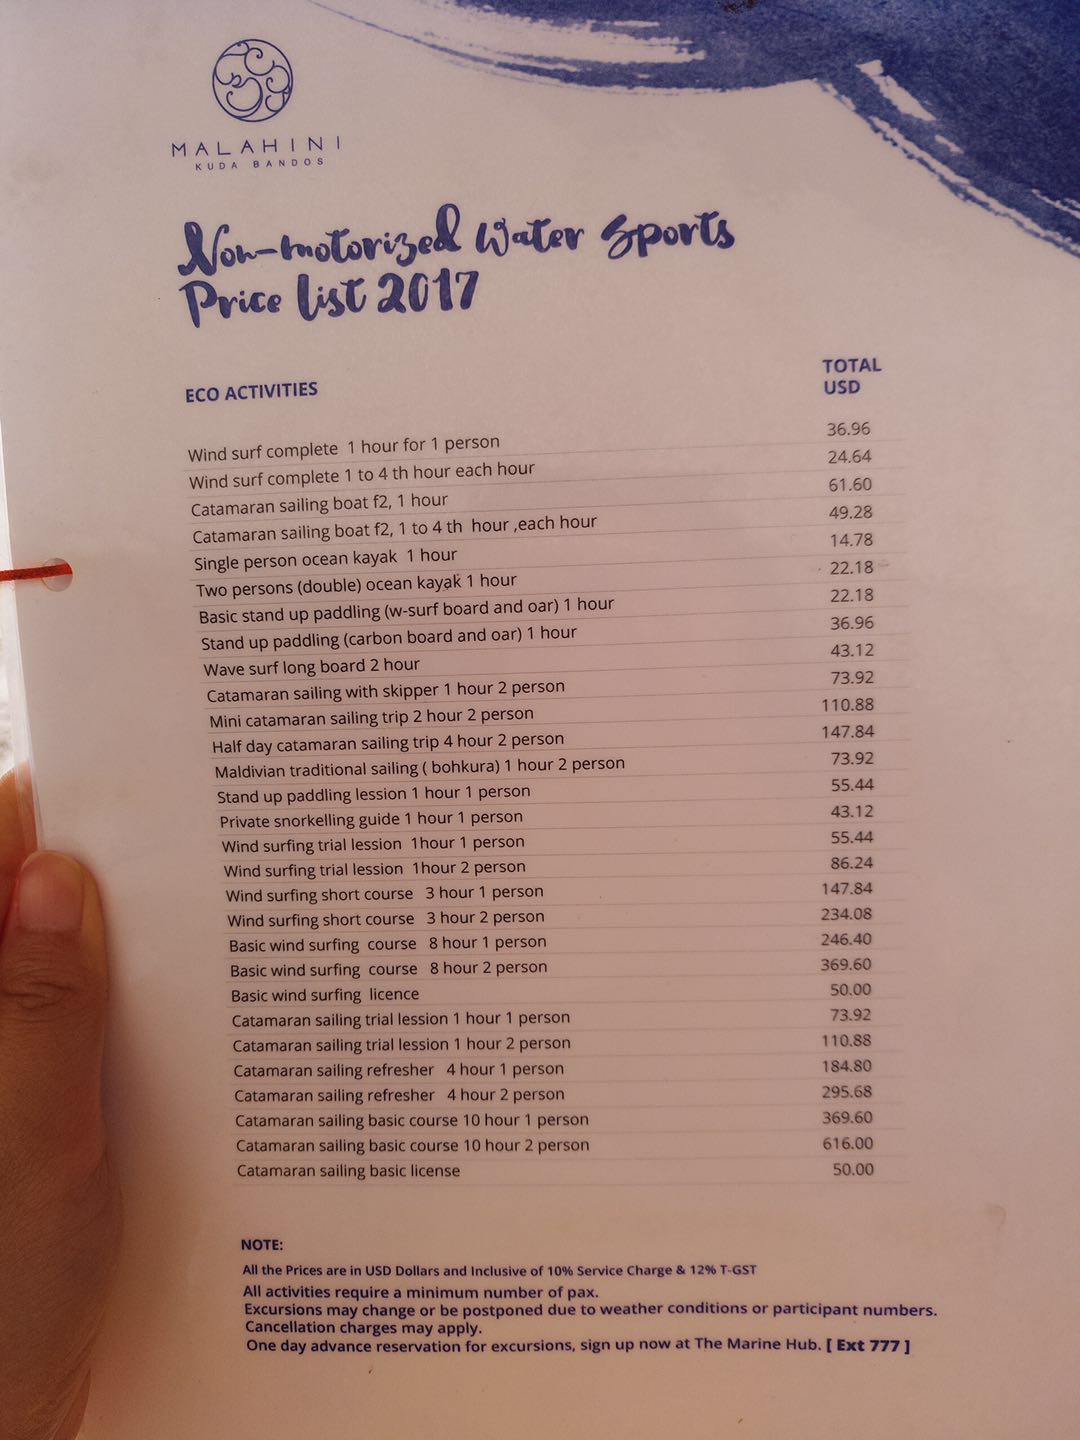 MALAHINI
KUDA BANDOS
Non-motorized Water Sports
Price list 2017
ECO ACTIVITIES TOTAL USD
Wind surf complete 1 hour for 1 person 36.96
Wind surf complete 1 to 4 th hour each hour 24.64
Catamaran sailing boat f2, 1 hour 61.60
Catamaran sailing boat f2, 1 to 4 th hour ,each hour 49.28
Single person ocean kayak 1 hour 14.78
Two persons (double) ocean kayak 1 hour 22.18
Basic stand up paddling (w-surf board and oar) 1 hour 22.18
Stand up paddling (carbon board and oar) 1 hour 36.96
Wave surf long board 2 hour 43.12
Catamaran sailing with skipper 1 hour 2 person 73.92
Mini catamaran sailing trip 2 hour 2 person 110.88
Half day catamaran sailing trip 4 hour 2 person 147.84
Maldivian traditional sailing ( bohkura) 1 hour 2 person 73.92
Stand up paddling lession 1 hour 1 person 55.44
Private snorkelling guide 1 hour 1 person 43.12
Wind surfing trial lession 1hour 1 person 55.44
Wind surfing trial lession 1hour 2 person 86.24
Wind surfing short course 3 hour 1 person 147.84
Wind surfing short course 3 hour 2 person 234.08
Basic wind surfing course 8 hour 1 person 246.40
Basic wind surfing course 8 hour 2 person 369.60
Basic wind surfing licence 50.00
Catamaran sailing trial lession 1 hour 1 person 73.92
Catamaran sailing trial lession 1 hour 2 person 110.88
Catamaran sailing refresher 4 hour 1 person 184.80
Catamaran sailing refresher 4 hour 2 person 295.68
Catamaran sailing basic course 10 hour 1 person 369.60
Catamaran sailing basic course 10 hour 2 person 616.00
Catamaran sailing basic license 50.00
NOTE:
All the Prices are in USD Dollars and Inclusive of 10% Service Charge & 12% T-GST
All activities require a minimum number of pax.
Excursions may change or be postponed due to weather conditions or participant numbers.
Cancellation charges may apply.
One day advance reservation for excursions, sign up now at The Marine Hub. [ Ext 777 ]